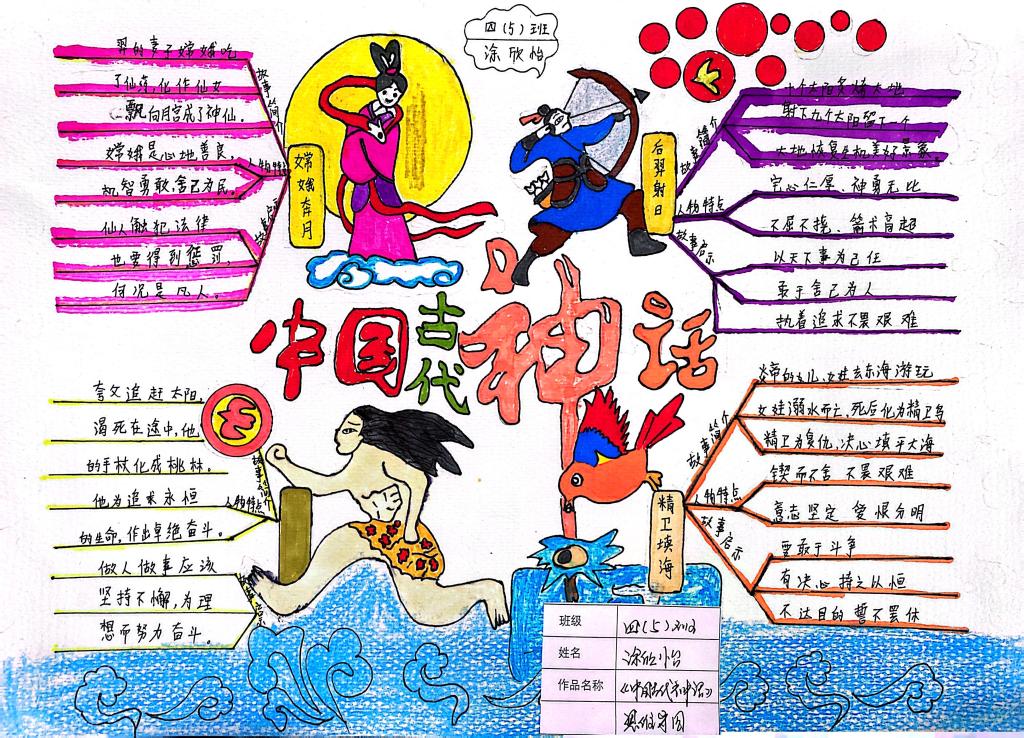 四（5）班
涂欣怡
中国古代神话
嫦娥奔月
故事简介
羿的妻子嫦娥吃
了仙药，化作仙女
飘向月宫成了神仙。
人物特点
嫦娥是心地善良，
机智勇敢舍己为民。
仙人触犯法律
也要得到惩罚，
何况是凡人。
后羿射日
故事简介
十个太阳炙烤大地
射下九个太阳留下一个
大地恢复生机美好景象。
人物特点
宅心仁厚、神勇无比
不屈不挠、箭术高超
故事启示
以天下事为己任
敢于舍己为人
执着追求不畏艰难
夸父追赶太阳，
渴死在途中，他
的手杖化成桃林。
故事简介
人物特点
他为追求永恒
的生命，作出卓绝奋斗。
做人做事应该
坚持不懈，为理
想而努力奋斗。
精卫填海
故事简介
炎帝的女儿女娃去东海游玩
女娃溺水而亡，死后化为精卫鸟
精卫为复仇、决心填平大海
人物特点
锲而不舍 不畏艰难
意志坚定 爱恨分明
故事启示
要敢于斗争
有决心 持之以恒
不达目的 誓不罢休
班级 四（5）班
姓名 涂欣怡
作品名称 《中国古代神话》
思维导图